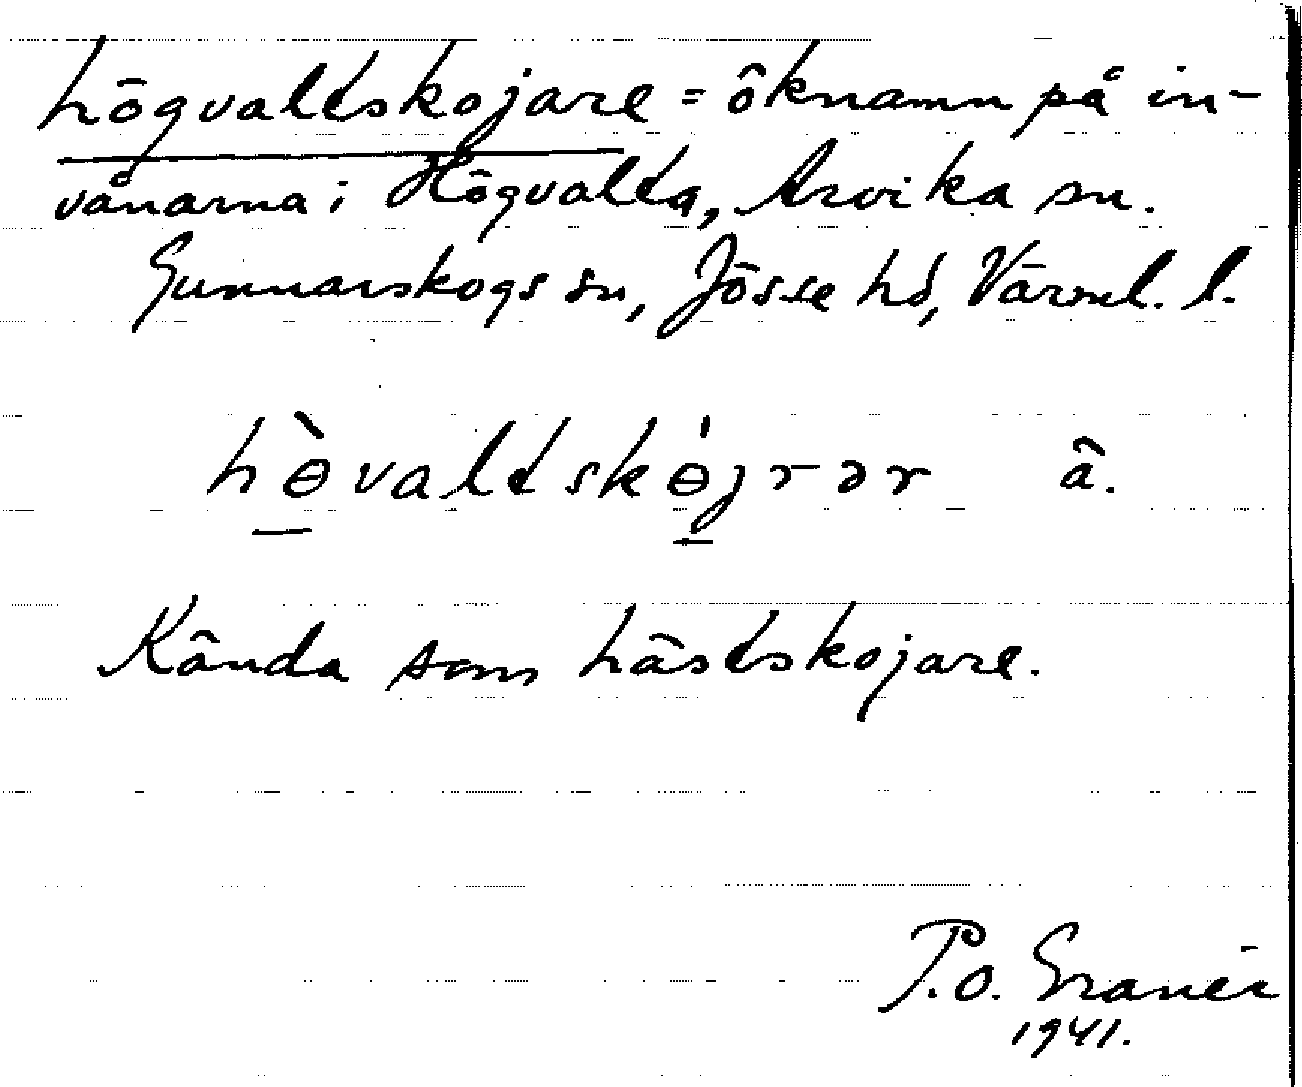 högvaltskojare = öknamn på in-
vånarna i Högvalta, Arvika sn.
Gunnarskogs sn, Jösse hd, Värml. l.
hɵ̀valtskɵ́jrər ä.
Kända som hästskojare.
P.O. Granér
1941.